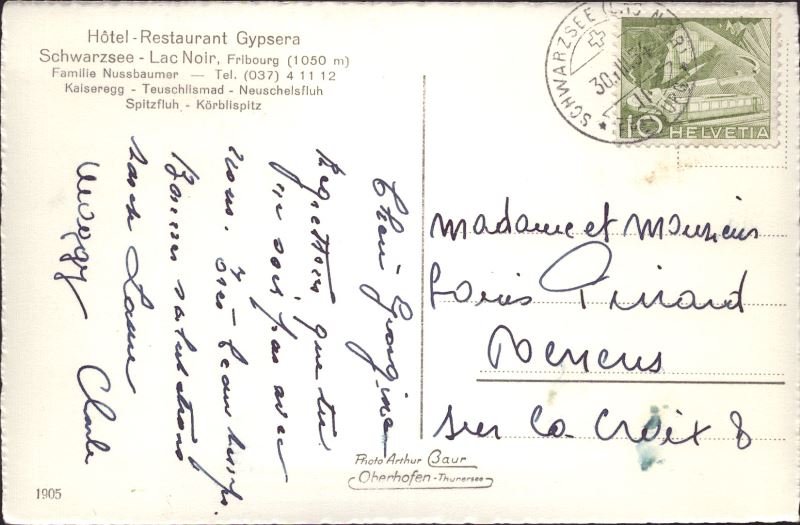 Hôtel-Restaurant Gypsera
Schwarzsee - Lac Noir, Fribourg (1050 m)
Familie Nussbaumer — Tel. (037) 4 11 12
Kaiseregg - Teuschlismad - Neuschelsfluh
Spitzfluh - Körblispitz
SCHWARZSEE (LAC NOIR)
30.
FRIBOURG
10 HELVETIA
Chère Georgine
Regrettons que tu
ne sois pas avec
nous. Très beau temps.
Bonnes salutations
Tante Laure
Charles
Madame et Monsieur
Louis Pinard
Renens
sur la Croix 8
Photo Arthur Baur
Oberhofen-Thunersee
1905